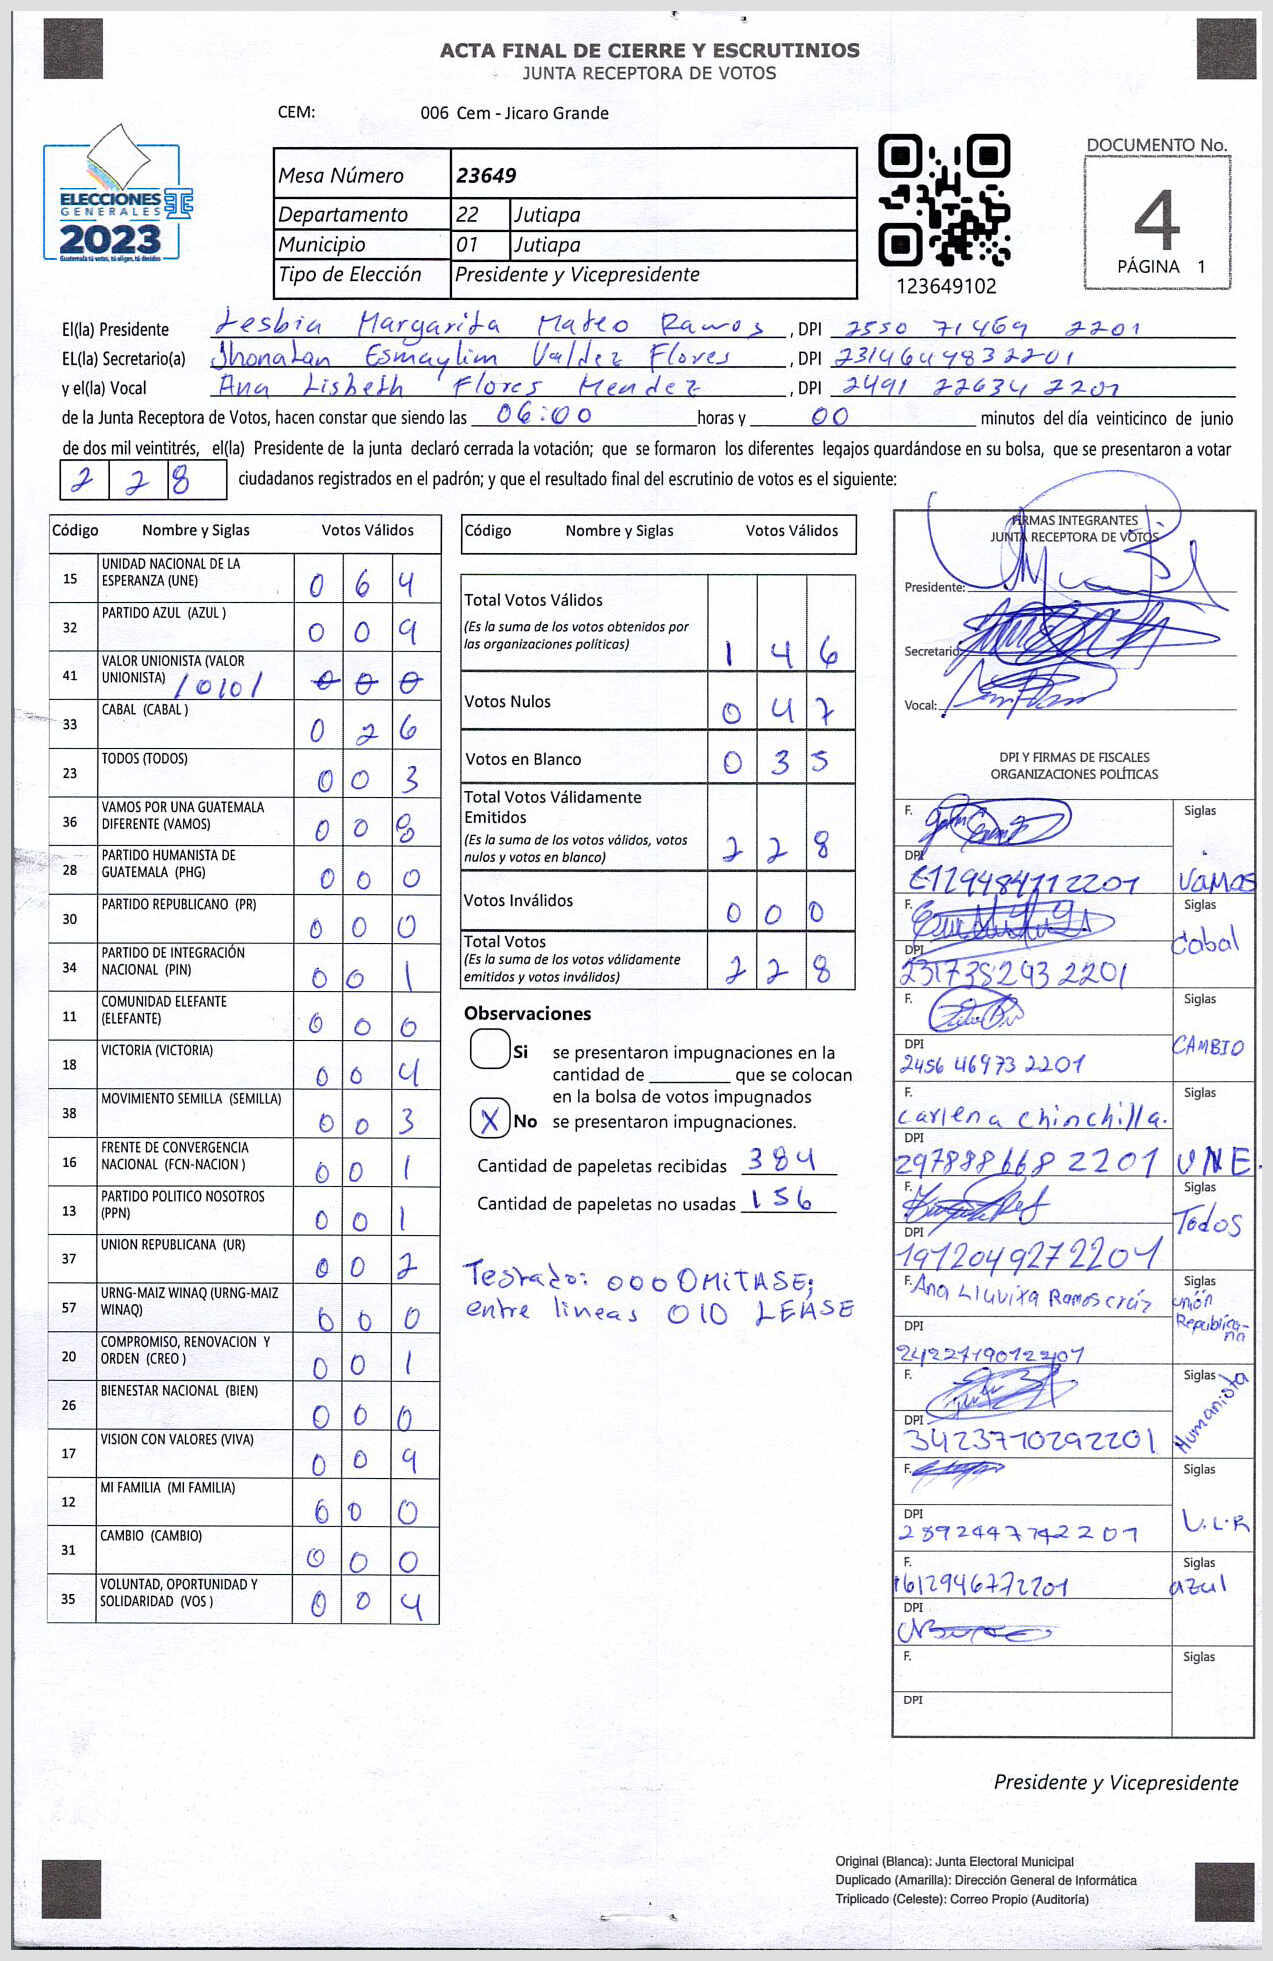 ACTA FINAL DE CIERRE Y ESCRUTINIOS
JUNTA RECEPTORA DE VOTOS
CEM: 006 Cem - Jicaro Grande
ELECCIONES
GENERALES
2023
Guatemala tú votas, tú eliges, tú decides
Mesa Número 23649
Departamento 22 Jutiapa
Municipio 01 Jutiapa
Tipo de Elección Presidente y Vicepresidente
123649102
DOCUMENTO No.
4
PÁGINA 1
El(la) Presidente Lesbia Margarita Mateo Ramos , DPI 2550 71469 2201
EL(la) Secretario(a) Jhonatan Esmaylim Valdez Flores , DPI 2314649832201
y el(la) Vocal Ana Lisbeth Flores Mendez , DPI 2491 22634 2201
de la Junta Receptora de Votos, hacen constar que siendo las 06:00 horas y 00 minutos del día veinticinco de junio
de dos mil veintitrés, el(la) Presidente de la junta declaró cerrada la votación; que se formaron los diferentes legajos guardándose en su bolsa, que se presentaron a votar
2 2 8 ciudadanos registrados en el padrón; y que el resultado final del escrutinio de votos es el siguiente:
Código Nombre y Siglas Votos Válidos
15 UNIDAD NACIONAL DE LA ESPERANZA (UNE) 0 6 4
32 PARTIDO AZUL (AZUL ) 0 0 9
41 VALOR UNIONISTA (VALOR UNIONISTA) /0101 0 0 0
33 CABAL (CABAL ) 0 2 6
23 TODOS (TODOS) 0 0 3
36 VAMOS POR UNA GUATEMALA DIFERENTE (VAMOS) 0 0 8
28 PARTIDO HUMANISTA DE GUATEMALA (PHG) 0 0 0
30 PARTIDO REPUBLICANO (PR) 0 0 0
34 PARTIDO DE INTEGRACIÓN NACIONAL (PIN) 0 0 1
11 COMUNIDAD ELEFANTE (ELEFANTE) 0 0 0
18 VICTORIA (VICTORIA) 0 0 4
38 MOVIMIENTO SEMILLA (SEMILLA) 0 0 3
16 FRENTE DE CONVERGENCIA NACIONAL (FCN-NACION ) 0 0 1
13 PARTIDO POLITICO NOSOTROS (PPN) 0 0 1
37 UNION REPUBLICANA (UR) 0 0 2
57 URNG-MAIZ WINAQ (URNG-MAIZ WINAQ) 0 0 0
20 COMPROMISO, RENOVACION Y ORDEN (CREO ) 0 0 1
26 BIENESTAR NACIONAL (BIEN) 0 0 0
17 VISION CON VALORES (VIVA) 0 0 9
12 MI FAMILIA (MI FAMILIA) 0 0 0
31 CAMBIO (CAMBIO) 0 0 0
35 VOLUNTAD, OPORTUNIDAD Y SOLIDARIDAD (VOS ) 0 0 4
Código Nombre y Siglas Votos Válidos
Total Votos Válidos
(Es la suma de los votos obtenidos por
las organizaciones politicas) 1 4 6
Votos Nulos 0 4 7
Votos en Blanco 0 3 5
Total Votos Válidamente
Emitidos
(Es la suma de los votos válidos, votos
nulos y votos en blanco) 2 2 8
Votos Inválidos 0 0 0
Total Votos
(Es la suma de los votos válidamente
emitidos y votos inválidos) 2 2 8
Observaciones
Si se presentaron impugnaciones en la
cantidad de ________ que se colocan
en la bolsa de votos impugnados
X No se presentaron impugnaciones.
Cantidad de papeletas recibidas 384
Cantidad de papeletas no usadas 156
Testado: 000 OMITASE;
entre lineas 010 LEASE
FIRMAS INTEGRANTES
JUNTA RECEPTORA DE VOTOS
Presidente:
Secretario:
Vocal:
DPI Y FIRMAS DE FISCALES
ORGANIZACIONES POLÍTICAS
F. Siglas
DPI
VAMOS
F. Siglas
Cabal
DPI
231738293 2201
F. Siglas
DPI CAMBIO
2456 46973 2201
F. Siglas
Carlena Chinchilla.
DPI
297888668 2201 UNE.
F. Siglas
Todos
DPI
1912049272201
F. Ana Lluvixa Ramos cruz Siglas
unión
Republicana
DPI
2422719012201
F. Siglas
Humanista
DPI
3423710292201
F. Siglas
DPI
2892447742201 V.L.R
F. Siglas
1612946772201 azul
DPI
F. Siglas
DPI
Presidente y Vicepresidente
Original (Blanca): Junta Electoral Municipal
Duplicado (Amarilla): Dirección General de Informática
Triplicado (Celeste): Correo Propio (Auditoría)